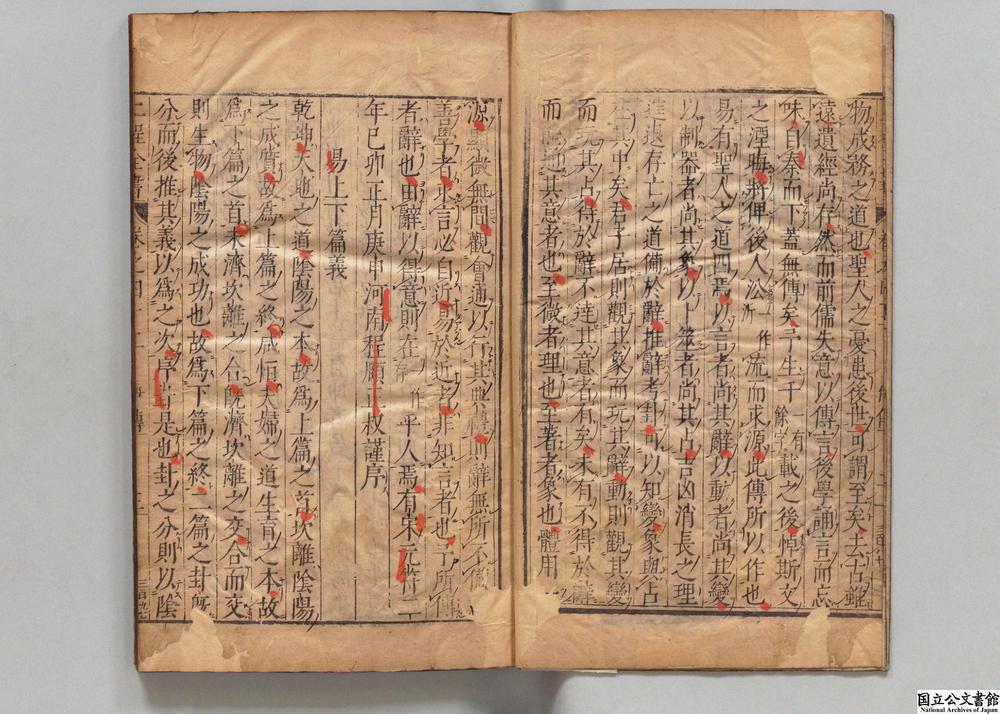 物成務之道也聖人之憂患後世可謂至矣去古雖
遠遺經尚存然而前儒失意以傳言後學誦言而忘
味自秦而下蓋無傳矣予生千餘字有載之後悼斯文
之湮晦將俾後人沿所作流而求源此傳所以作也
易有聖人之道四焉以言者尚其辭以動者尚其變
以制器者尚其象以卜筮者尚其占吉凶消長之理
進退存亡之道備於辭推辭考卦可以知變象與占
在其中矣君子居則觀其象而玩其辭動則觀其變
而玩其占得於辭不達其意者有矣未有不得於辭
而能通其意者也至微者理也至著者象也體用一
源顯微無間觀會通以行其典禮則辭無所不備故
善學者求言必自近易於近者非知言者也予所傳
者辭也由辭以得意則在作乎人焉有宋元符二
年己卯正月庚申河南程頤正叔謹序
易上下篇義
乾坤天地之道陰陽之本故爲上篇之首坎離陰陽
之成質故爲上篇之終咸恒夫婦之道生育之本故
爲下篇之首未濟坎離之合既濟坎離之交合而交
則生物陰陽之成功也故爲下篇之終二篇之卦旣
分而後推其義以爲之次序卦是也卦之分則以陰
二程全書
国立公文書館
National Archives of Japan